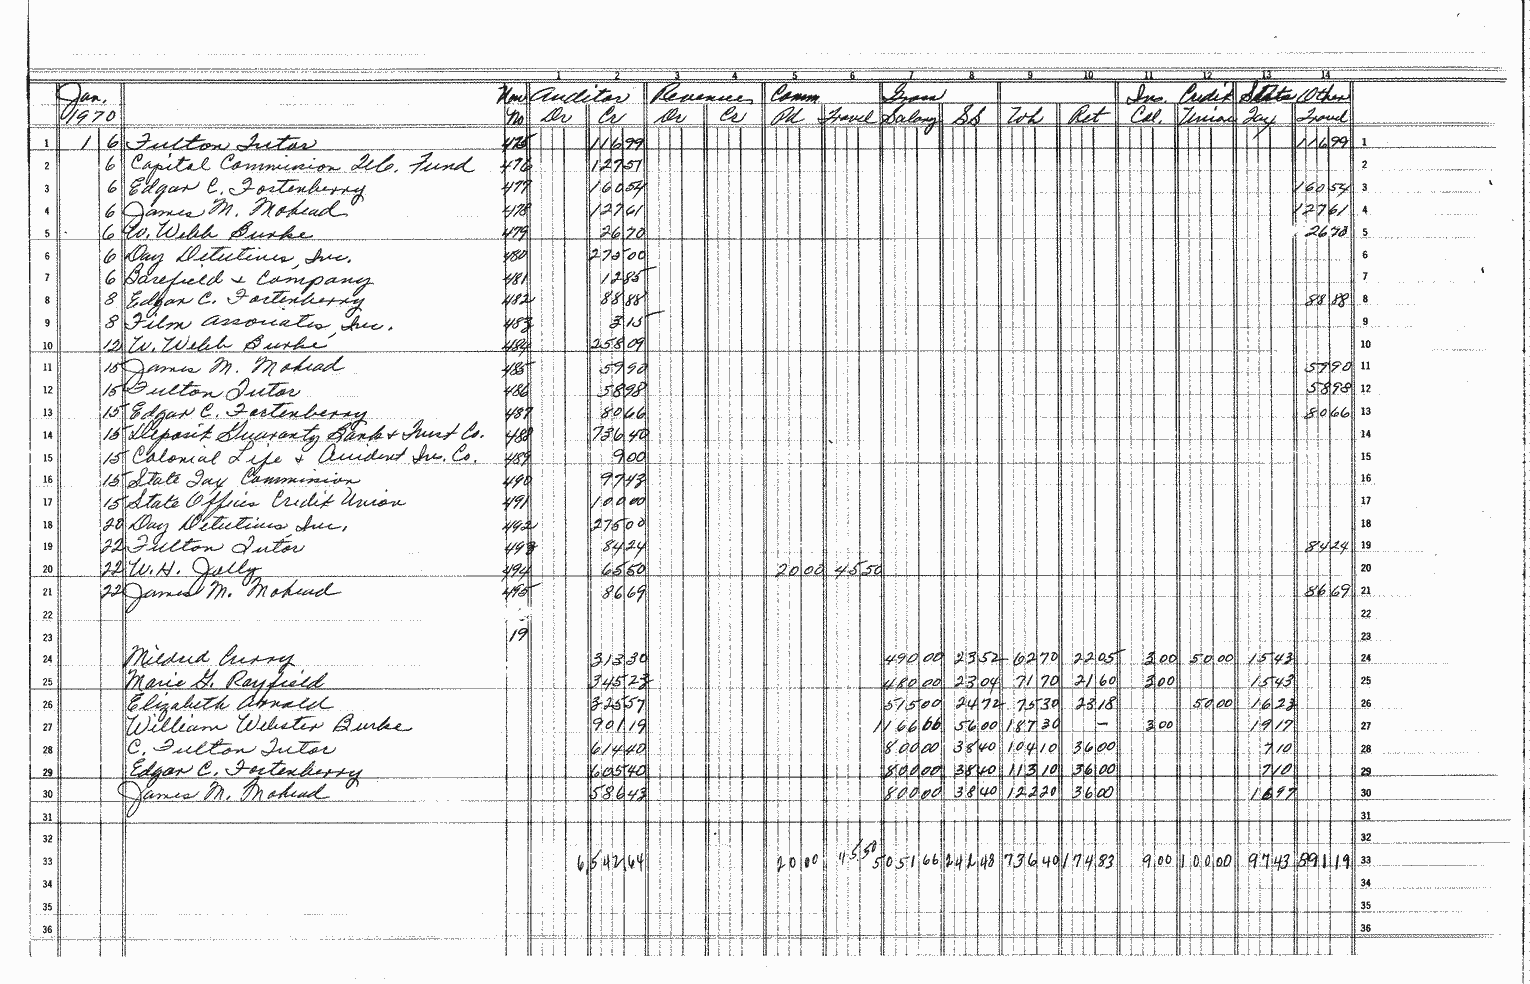 1 2 3 4 5 6 7 8 9 10 11 12 13 14
Jan. Auditor Revenues Comm Gross Ins. Credit State Other
1970 No Dr Cr Dr Cr Pd Travel Salary SS Wh Ret Col. Union Tax Travel
1 1 6 Fulton Tutor 475 116 99 116 99 1
2 6 Capital Commission Fund 476 127 51 2
3 6 Edgar C. Fortenberry 477 160 54 160 54 3
4 6 James M. Mohead 478 127 61 127 61 4
5 6 W. Webb Burke 479 26 70 26 70 5
6 6 Day Detectives, Inc. 480 275 00 6
7 6 Barefield & Company 481 12 85 7
8 8 Edgar C. Fortenberry 482 88 88 88 88 8
9 8 Film Associates, Inc. 483 3 15 9
10 12 W. Webb Burke 484 258 09 10
11 15 James M. Mohead 485 59 90 57 90 11
12 15 Fulton Tutor 486 58 98 58 98 12
13 15 Edgar C. Fortenberry 487 80 66 80 66 13
14 15 Deposit Guaranty Bank & Trust Co. 488 736 40 14
15 15 Colonial Life & Accident Ins. Co. 489 9 00 15
16 15 State Tax Commission 490 97 43 16
17 15 State Offices Credit Union 491 100 00 17
18 20 Day Detectives Inc. 492 275 00 18
19 22 Fulton Tutor 493 84 24 84 24 19
20 22 W. H. Jolly 494 65 50 20 00 45 50 20
21 22 James M. Mohead 495 86 69 86 69 21
22 22
23 19 23
24 Mildred Curry 313 30 490 00 23 52 62 70 22 05 3 00 50 00 15 43 24
25 Marie G. Rayfield 345 23 480 00 23 04 71 70 21 60 3 00 15 43 25
26 Elizabeth Arnold 325 57 515 00 24 72 75 30 23 18 50 00 16 23 26
27 William Webster Burke 901 19 1166 66 56 00 187 30 — 3 00 19 17 27
28 C. Fulton Tutor 614 40 800 00 38 40 104 10 36 00 7 10 28
29 Edgar C. Fortenberry 605 40 800 00 38 40 113 10 36 00 7 10 29
30 James M. Mohead 586 43 800 00 38 40 122 20 36 00 16 97 30
31 31
32 32
33 6,542,64 20 00 45 50 5051 66 242 48 736 40 174 83 9 00 100 00 97 43 891 19 33
34 34
35 35
36 36